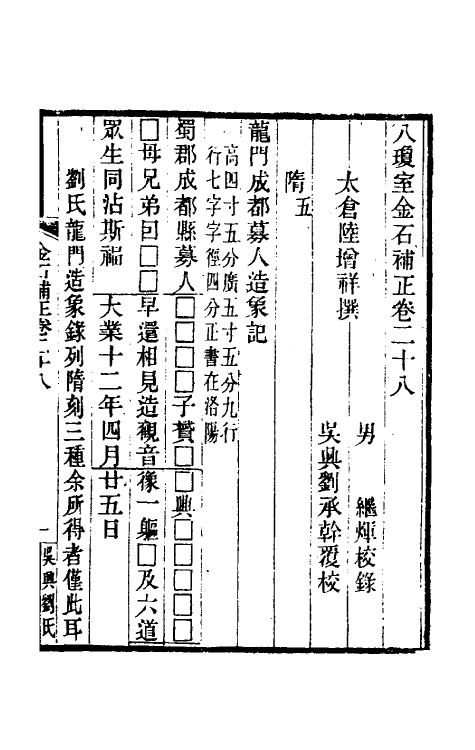 八瓊室金石補正卷二十八
太倉陸增祥撰
男　繼煇校錄
吳興劉承幹覆校
隋五
龍門成都募人造象記
高四寸五分廣五寸五分九行
行七字字徑四分正書在洛陽
蜀郡成都縣募人□□□□子贊□興□□□□□
□母兄弟回□□早還相見造觀音像一軀□及六道
眾生同沾斯福　大業十二年四月廿五日
劉氏龍門造象錄列隋刻三種余所得者僅此耳
金石補正卷二十八
一
吳興劉氏